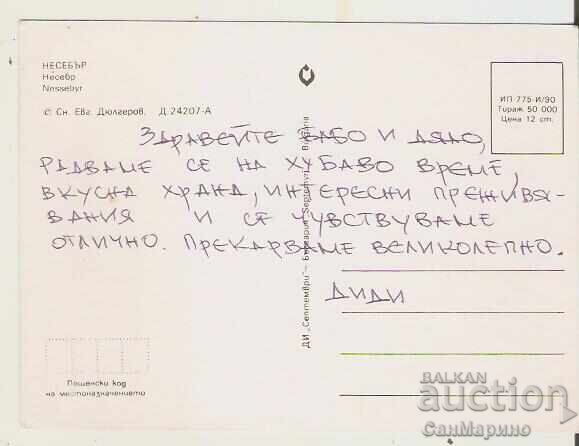 НЕСЕБЪР
Несебр
Nessebyr
© Сн. Евг. Дюлгеров. Д-24207-А
ИП 775-И/90
Тираж 50 000
Цена 12 ст.
ЗДРАВЕЙТЕ БАБО И ДЯДО,
РАДВАМЕ СЕ НА ХУБАВО ВРЕМЕ,
ВКУСНА ХРАНА, ИНТЕРЕСНИ ПРЕЖИВЯ-
ВАНИЯ И СЯ ЧУВСТВУВАМЕ
ОТЛИЧНО. ПРЕКАРВАМЕ ВЕЛИКОЛЕПНО.
ДИДИ
ДИ „Септември“ – България Septemvri – Bulgaria
Пощенски код
на местоназначението
BALKAN
auction
СанМарино